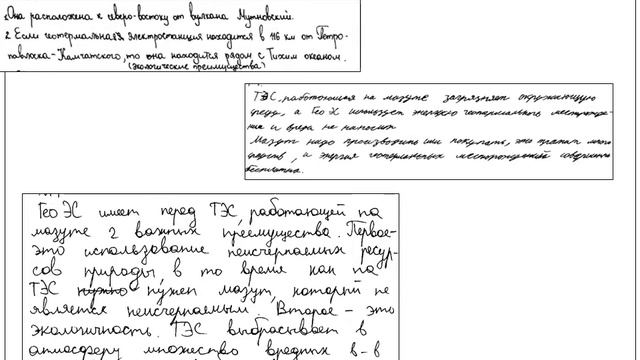 1. Она расположена к северо-востоку от вулкана Мутновский.
2. Если геотермальная электростанция находится в 116 км от Петро-
павловска-Камчатского, то она находится рядом с Тихим океаном.
(экологические преимущества)
ТЭС, работающая на мазуте загрязняет окружающую
среду, а ГеоЭС использует энергию геотермального месторожде-
ния и вреда не наносит.
Мазут надо производить или покупать, это тратит много
средств, а энергия геотермальных месторождений совершенно
бесплатна.
ГеоЭС имеет перед ТЭС, работающей на
мазуте 2 важных преимущества. Первое-
это использование неисчерпаемых ресур-
сов природы, в то время как на
ТЭС нужно нужен мазут, который не
является неисчерпаемым. Второе – это
экологичность. ТЭС выбрасывает в
атмосферу множество вредных в-в